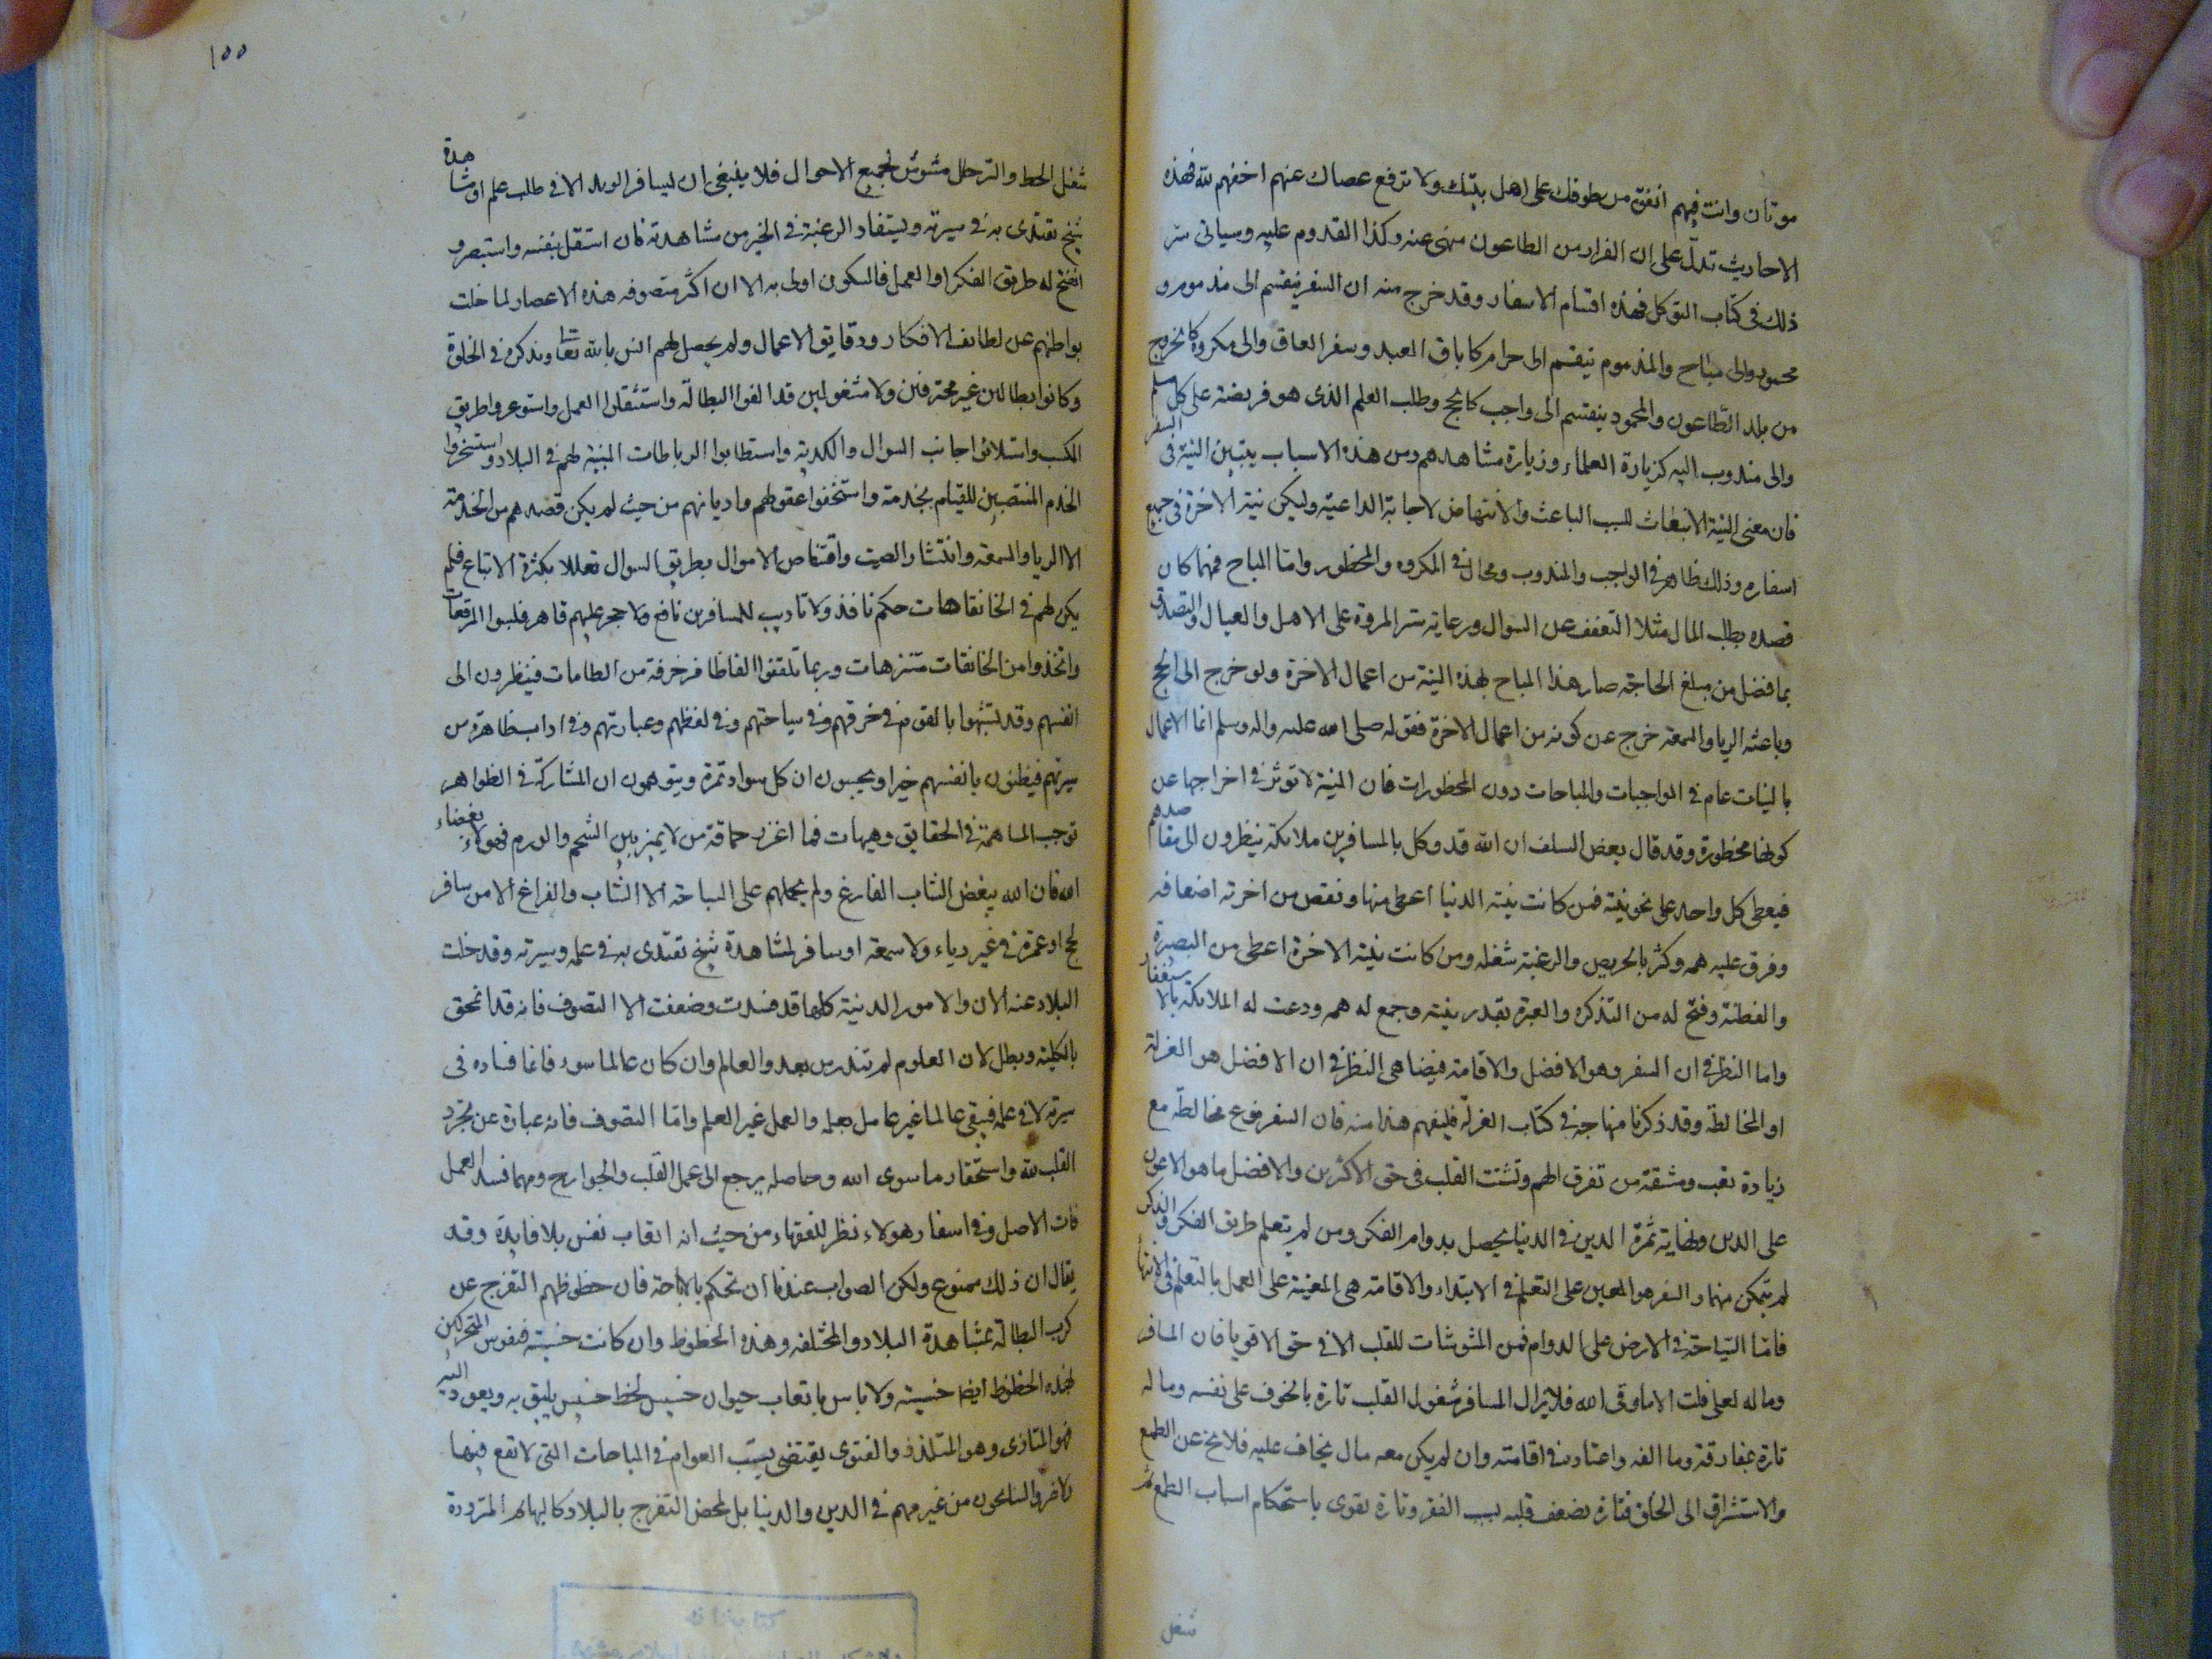 موتان وانت فيهم انفق من طولك على اهل بيتك ولا ترفع عصاك عنهم اخفهم بالله فهذه
الاحاديث تدلّ على ان الفرار من الطاعون منهى عنه وكذا القدوم عليه وسياتى سر
ذلك فى كتاب التوكل فهذه اقسام الاسفار وقد خرج منه ان السفر ينقسم الى مذموم و
محمود والى مباح والمذموم ينقسم الى حرام كاباق العبد وسفر العاق والى مكروه كالخروج
من بلد الطّاعون والمحمود ينقسم الى واجب كالحج وطلب العلم الذى هو فريضة على كل مسلم
والى مندوب اليه كزيارة العلماء وزيارة مشاهدهم ومن هذه الاسباب يتبين النية فى السفر
فان معنى النية الانبعاث للسبب الباعث والانتهاض لاجابة الداعية وليكن نية الاخرة فى جميع
اسفاره وذلك ظاهر فى الواجب والمندوب ومحال فى المكروه والمحظور واما المباح فمهما كان
قصده بطلب المال مثلا التعفف عن السوال ورعاية ستر المروة على الاهل والعيال والتصدق
بما فضل من مبلغ الحاجة صار هذا المباح بهذه النية من اعمال الاخرة ولو خرج الى الحج
وباعثه الريا والسمعة خرج عن كونه من اعمال الاخرة فقوله صلى الله عليه واله وسلم انما الاعمال
بالنيات عام فى الواجبات والمباحات دون المحظورات فان النية لا توثر فى اخراجها عن
كونها محظورة وقد قال بعض السلف ان الله قد وكل بالمسافرين ملائكة ينظرون الى مقاصدهم
فيعطى كل واحد على نحو نيته فمن كانت نيته الدنيا اعطى منها ونقص من اخرته اضعافه
وفرق عليه همه وكثر بالحرص والرغبة شغله ومن كانت نيته الاخرة اعطى من البصيرة
والفطنة وفتح له من التذكره والعبرة بقدر نيته وجمع له همه ودعت له الملائكة بالاستغفار
واما النظر فى ان السفر هو الافضل والاقامة فيضاهى النظر فى ان الافضل هو العزلة
او المخالطة وقد ذكرنا منهاجه فى كتاب العزلة فليفهم هذا منه فان السفر نوع مخالطة مع
زيادة تعب ومشقة من تفرق الهم وتشتت القلب فى حق الاكثرين والافضل ما هو الاعون
على الدين ونهاية ثمرة الدين فى الدنيا يحصل بدوام الفكر ومن لم يتعلم طريق الفكر والذكر
لم يتمكن منهما والسفر هو المعين على التعلم فى الابتداء والاقامة هى المعينة على العمل بالتعلم فى الانتها
فامّا السّياحة فى الارض على الدوام فمن المشوشات للقلب الا فى حق الاقويا فان المسافر
وماله لعلى قلت الا ما وقى الله فلا يزال المسافر مشغول القلب تارة بالخوف على نفسه وماله
تارة بمفارقة وما الفه واعتاده فى اقامته وان لم يكن معه مال يخاف عليه فلا يخ عن الطمع
والاستشراف الى الخلق فتارة يضعف قلبه بسبب الفقر وتارة يقوى باستحكام اسباب الطمع ثم
شغل
١٥٥
شغل الحط والترحل مشوش لجميع الاحوال فلا ينبغى ان يسافر المريد الا فى طلب علم او مشاهدة
شيخ يقتدى به فى سيرته ويستفاد الرغبة فى الخير من مشاهدته فان استقل بنفسه واستبصر و
انفتح له طريق الفكر او العمل فالسكون اولى به الا ان اكثر متصوفه هذه الاعصار لما خلت
بواطنهم عن لطايف الافكار ودقايق الاعمال ولم يحصل لهم انس بالله تعا وبذكره فى الخلوة
وكانوا بطالين غير محترفين ولا مشغولين قد الفوا البطالة واستثقلوا العمل واستوعروا طريق
الكسب واستلانوا جانب السوال والكدية واستطابوا الرباطات المبنية لهم فى البلاد واستسخروا
الخدم المنتصبين للقيام بخدمة واستخفوا عقولهم واديانهم من حيث لم يكن قصدهم من الخدمة
الا الريا والسمعة وانتشار الصيت واقتناص الاموال بطريق السوال تعللا بكثرة الاتباع فلم
يكن لهم فى الخانقاهات حكم نافذ ولا تاديب للمسافرين نافع ولا حجر عليهم قاهر فلبسوا المرقعات
واتخذوا من الخانقات متنزهات وربما تلقفوا الفاظا مزخرفة من الطامات فينظرون الى
انفسهم وقد تشبهوا بالقوم فى خرقهم وفى سياحتهم وفى لفظهم وعبارتهم وفى اداب ظاهرة من
سيرتهم فيظنون بانفسهم خيرا ويحسبون ان كل سواد تمرة ويتوهمون ان المشاركة فى الظواهر
توجب المساهمة فى الحقايق وهيهات فما اغزر حماقة من لا يميز بين الشحم والورم فهولاء بغضاء
الله فان الله يبغض الشاب الفارغ ولم يحملهم على السياحة الا الشاب والفراغ الا من سافر
لحج او عمرة فى غير رياء ولا سمعة او سافر لمشاهدة شيخ يقتدى به فى علمه وسيرته وقد خلت
البلاد عنه الان والامور الدينية كلها قد فسدت وضعفت الا التصوف فانه قد انمحق
بالكلية وبطل لان العلوم لم تندرس بعد والعالم وان كان عالما سوء فانما فساده فى
سيرته لا فى علمه فيبقى عالما غير عامل بعلمه والعمل غير العلم وامّا التصوف فانه عبارة عن تجرد
القلب لله واستحقار ما سوى الله وحاصله يرجع الى عمل القلب والجوارح ومهما فسد العمل
فات الاصل وفى اسفار هولاء نظر للفقهاء من حيث انه اتعاب نفس بلا فايدة وقد
يقال ان ذلك ممنوع ولكن الصواب عندنا ان نحكم بالاباحة فان حظوظهم التفرج عن
كرب البطالة بمشاهدة البلاد والمختلفه وهذه الحظوظ وان كانت خسيسة فنفوس المتحركين
لهذه الحظوظ ايضا خسيسة ولا باس باتعاب حيوان خسيس لحظ خسيس يليق به ويعود اليه
فهو المتاذى وهو المتلذذ والفتوى يقتضى تسيب العوام فى المباحات التى لا نفع فيها
ولا ضر والسايحون من غير مهم فى الدين والدنيا بل لمحض التفرج بالبلاد كالبهائم المترددة
كتابخانه